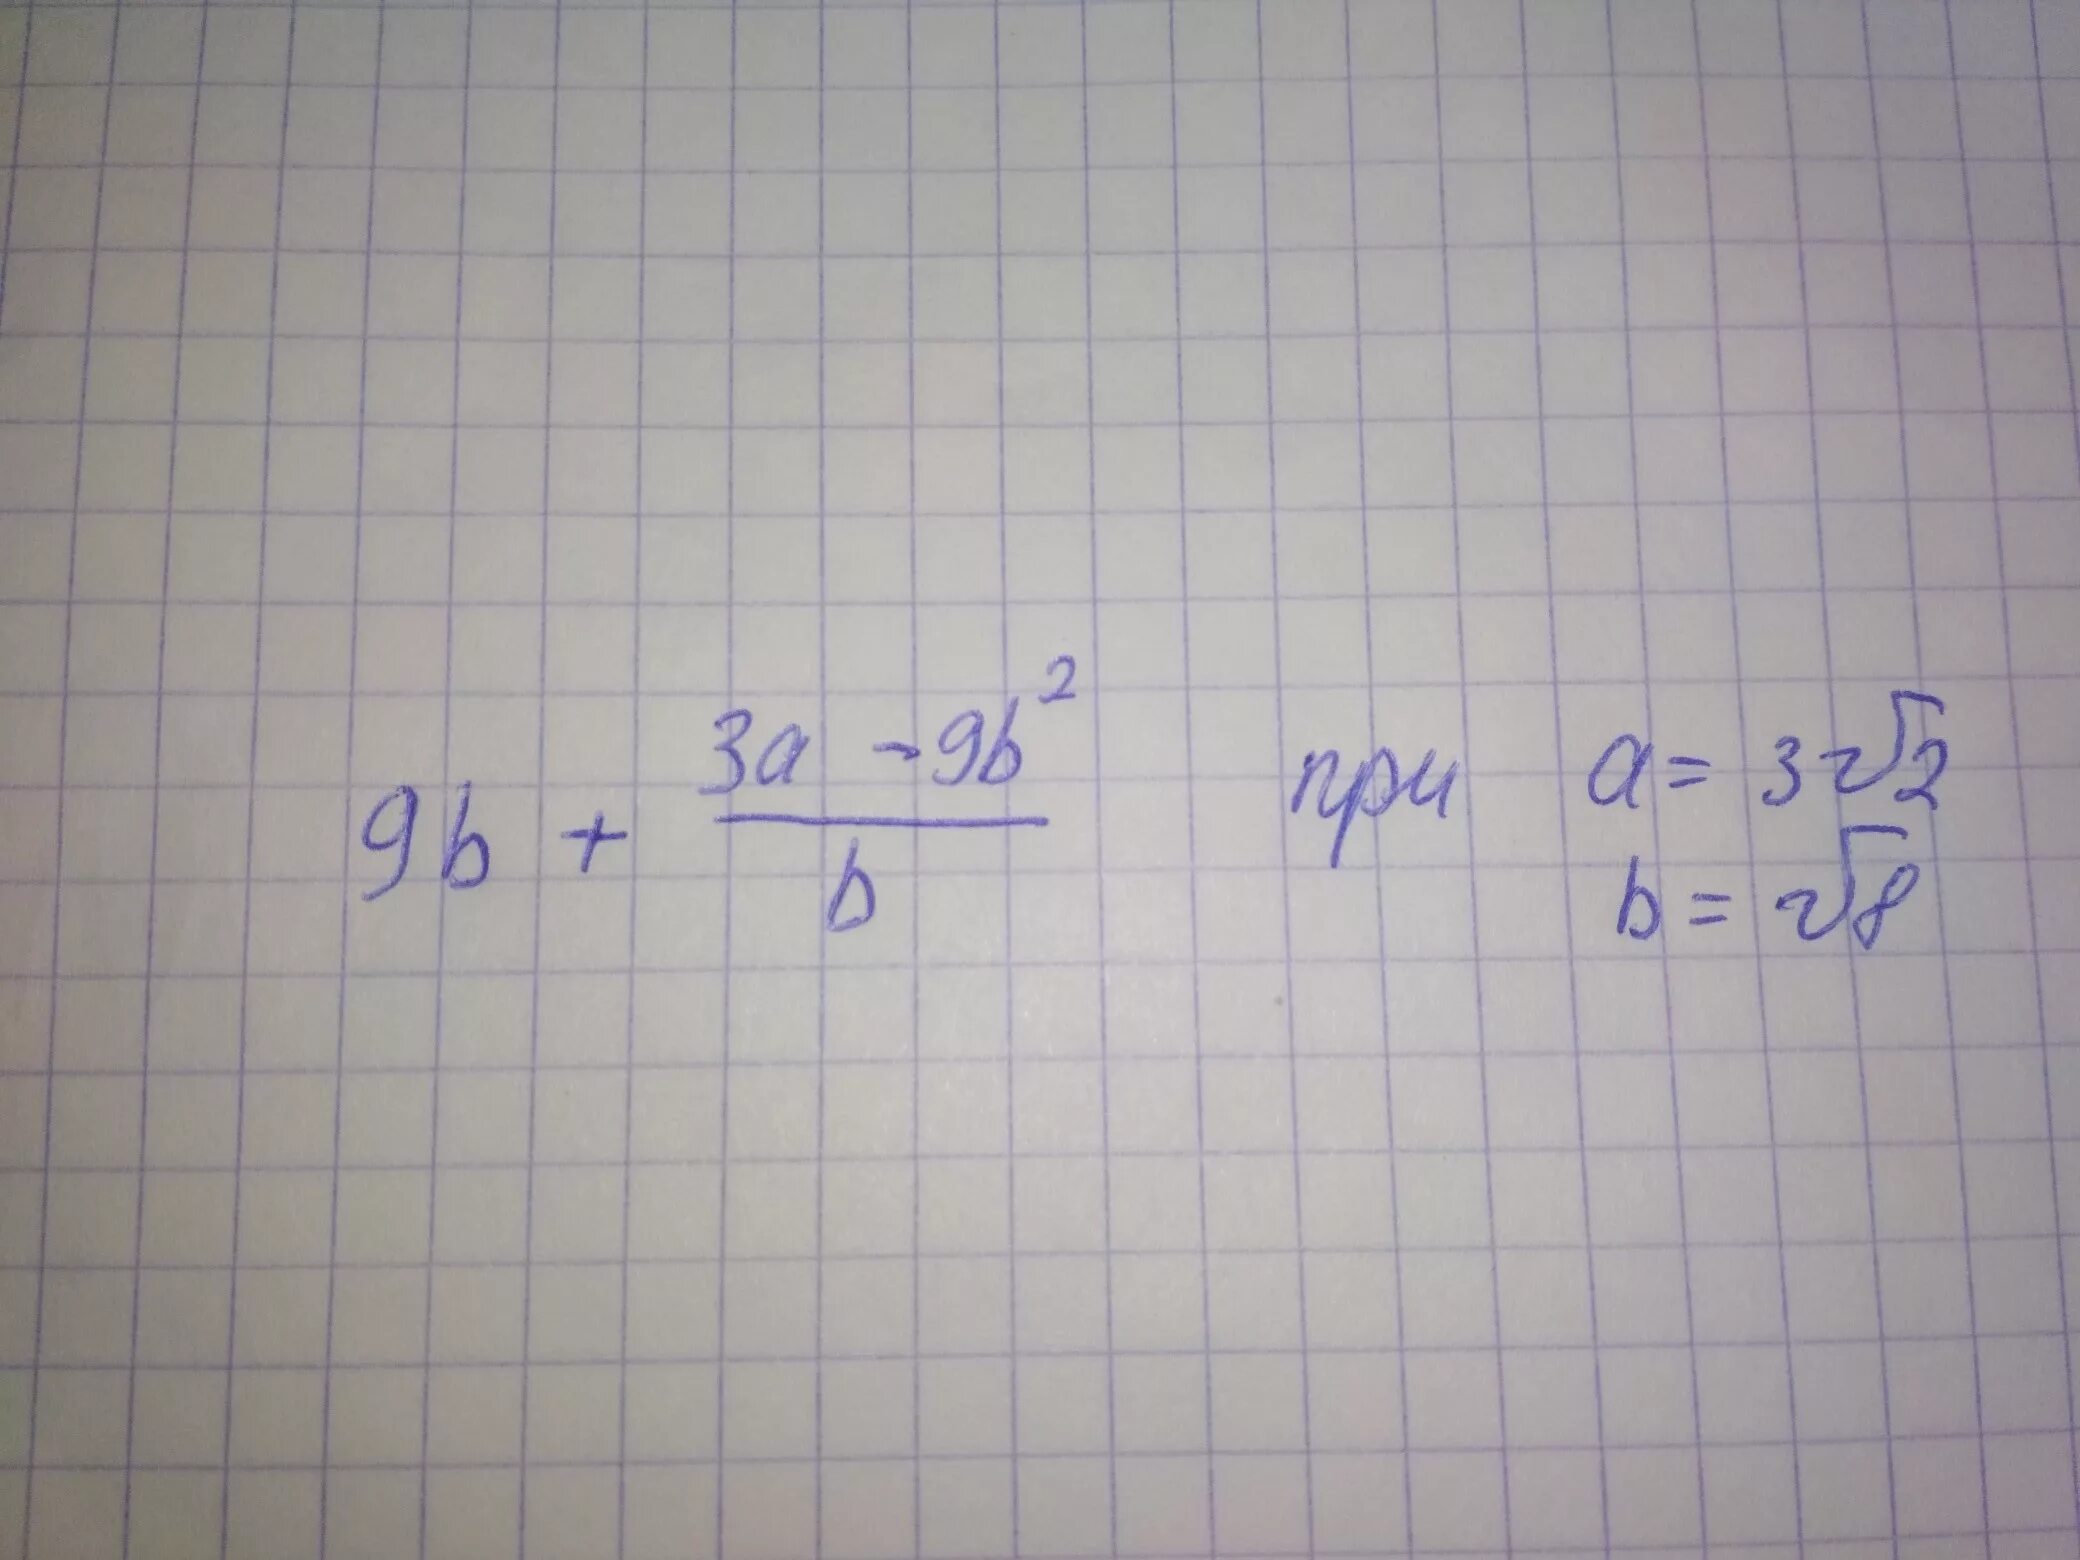 9b + (3a - 9b²)/b при a = 3√2
b = √8